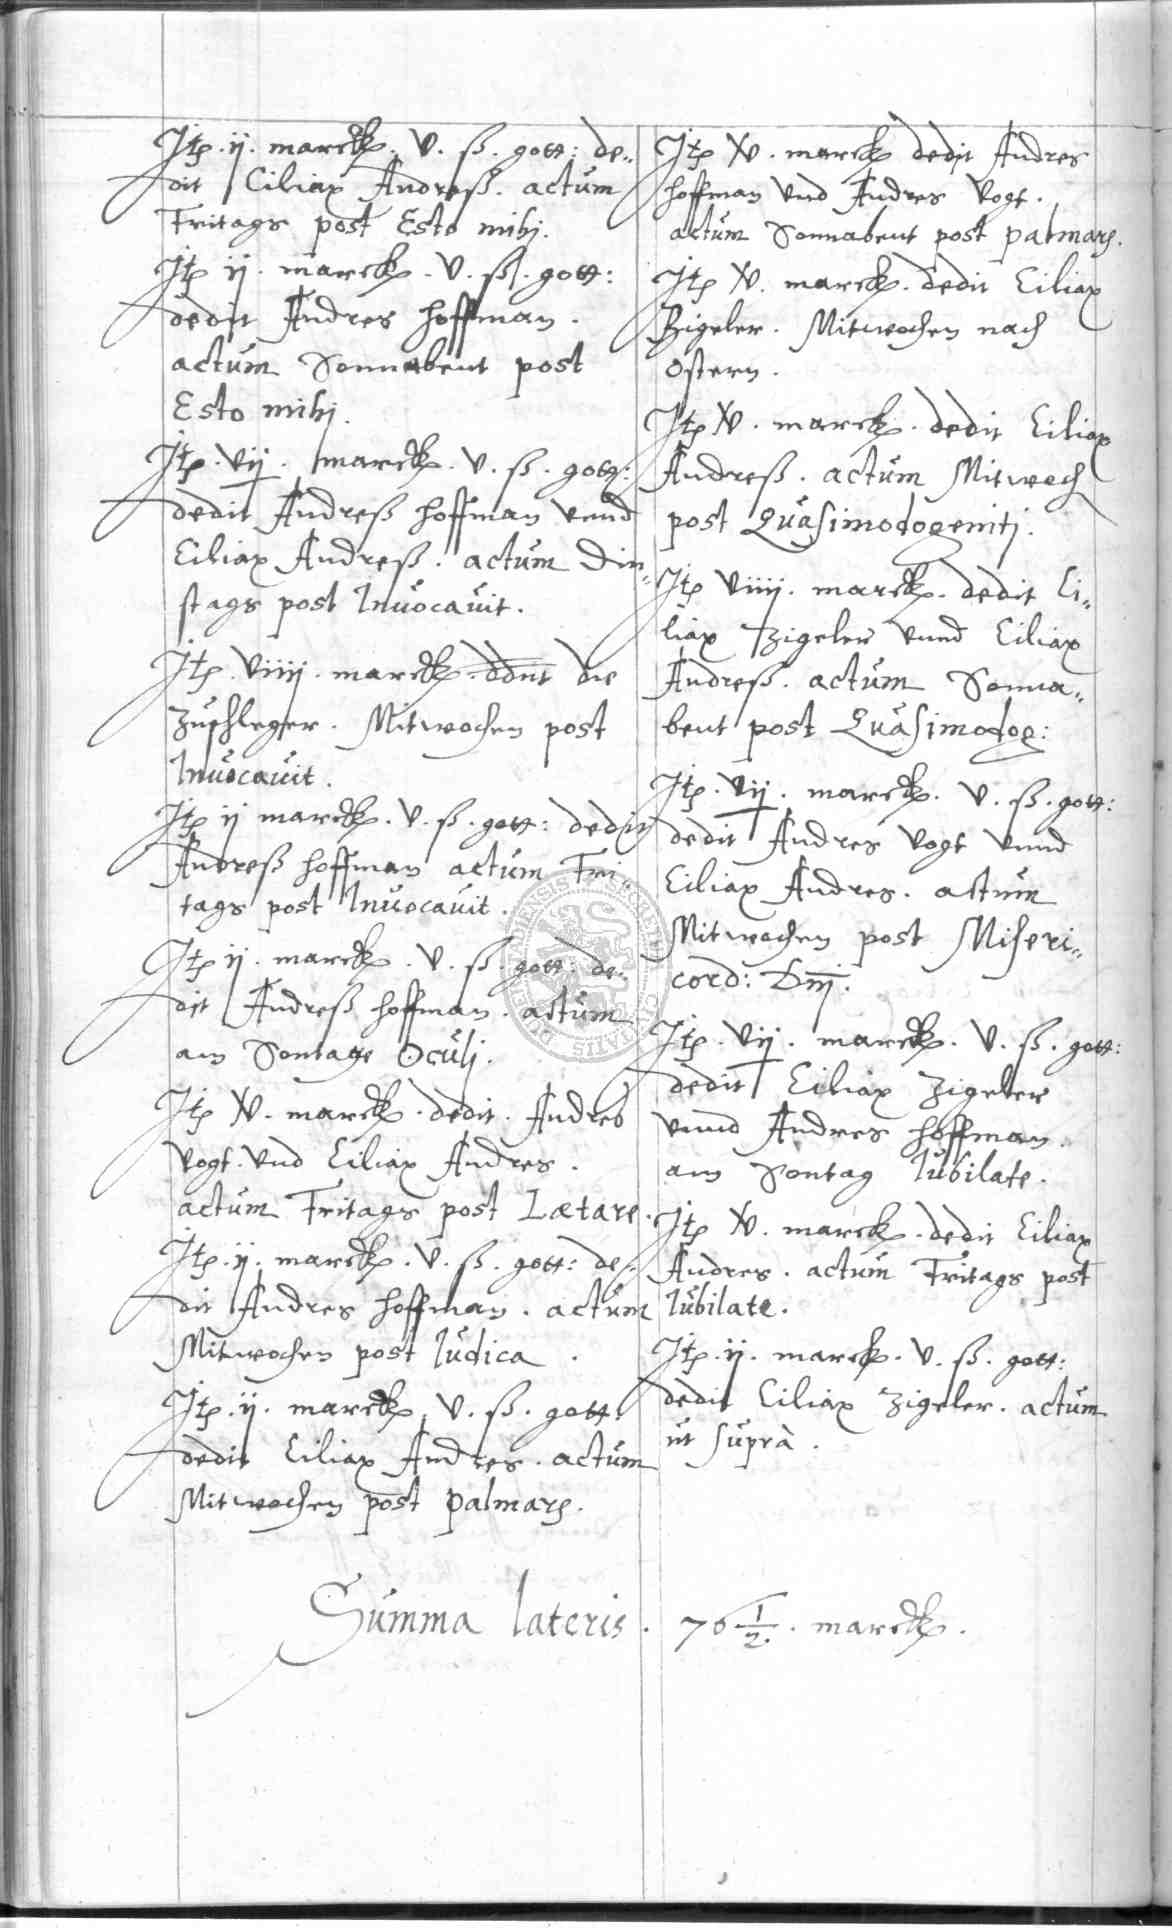 Itē .ij. marck. v. ß. gott: de-
dit Ciliax Andreß. actum
Fritags post Esto mihj.
Itē ij. marck. v. ß. gott:
dedit Andres Hoffman.
actum Sonnabent post
Esto mihj.
Itē. vij. marck. v. ß. gott:
dedit Andreß Hoffman vnnd
Ciliax Andreß. actum Din-
stags post Inuocauit.
Itē. viiij. marck. ddnt die
Zuschleger. Mitwochen post
Inuocauit.
Itē ij marck. v. ß. gott: dedit
Andreß Hoffman actum Fri-
tags post Inuocauit.
Itē ij. marck. v. ß. gott: de-
dit Andreß Hoffman. actum
am Sontage Oculj.
Itē XV. marck. dedit. Andres
Vogt. vnd Ciliax Andres.
actum Fritags post Lætare.
Itē. ij. marck. v. ß. gott: de-
dit Andres Hoffman. actum
Mitwochen post Iudica.
Itē. ij. marck. v. ß. gott:
dedit Ciliax Andres. actum
Mitwochen post palmarꝫ.
Itē XV. marck dedit Andres
Hoffman vnd Andres Vogt.
actum Sonnabent post palmarꝫ.
Itē XV. marck. dedit Ciliax
Zigeler. Mitwochen nach
Ostern.
Itē XV. marck. dedit Ciliax
Andreß. actum Mitwoch
post Quasimodogenitj.
Itē viiij. marck. dedit Ci-
liax Zigeler vnnd Ciliax
Andreß. actum Sonna-
bent post Quasimodog:
Itē. vij. marck. v. ß. gott:
dedit Andres Vogt vnnd
Ciliax Andres. actum
Mitwochen post Miseri-
cord: Dnj.
Itē. vij. marck. v. ß. gott:
dedit Ciliax Zigeler
vnnd Andres Hoffman.
am Sontag Iubilate.
Itē XV. marck. dedit Ciliax
Andres. actum Fritags post
Iubilate.
Itē. ij. marck. v. ß. gott:
dedit Ciliax Zigeler. actum
ut suprà.
Summa lateris. 76 1/2. marck.